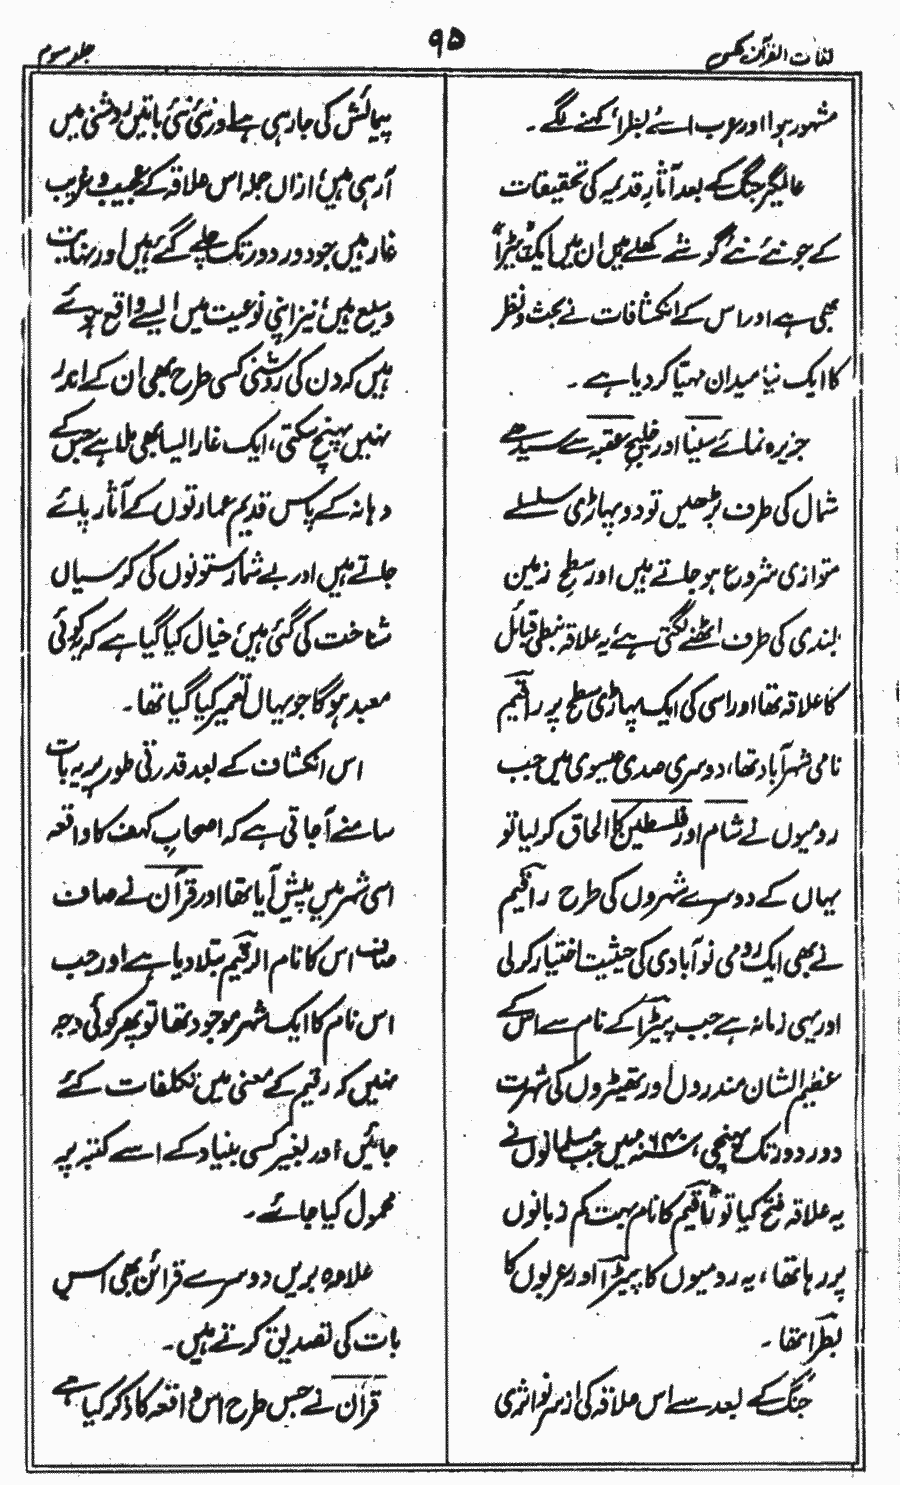 لغات القرآن مکمل
۹۵
جلد سوم
مشہور ہوا اور عرب اسے بطرا کہنے لگے۔
عالمگیر جنگ کے بعد آثارِ قدیمہ کی تحقیقات
کے جو نئے نئے گوشے کھلے ہیں ان میں ایک پیٹرا
بھی ہے اور اس کے انکشافات نے بحث و نظر
کا ایک نیا میدان مہیا کر دیا ہے۔
جزیرہ نمائے سینا اور خلیج عقبہ سے سیدھے
شمال کی طرف بڑھیں تو دو پہاڑی سلسلے
متوازی شروع ہو جاتے ہیں اور سطح زمین
بلندی کی طرف اٹھنے لگتی ہے، یہ علاقہ نبطی قبائل
کا علاقہ تھا اور اسی کی ایک پہاڑی سطح پر راقیم
نامی شہر آباد تھا، دوسری صدی عیسوی میں جب
رومیوں نے شام اور فلسطین کا الحاق کر لیا تو
یہاں کے دوسرے شہروں کی طرح راقیم
نے بھی ایک رومی نوآبادی کی حیثیت اختیار کر لی
اور یہی زمانہ ہے جب پیٹرا کے نام سے اس کے
عظیم الشان مندروں اور تھیٹروں کی شہرت
دور دور تک پہنچی، ۶۴۰ء میں جب مسلمانوں نے
یہ علاقہ فتح کیا تو راقیم کا نام بہت کم زبانوں
پر رہا تھا، یہ رومیوں کا پیٹرا اور عربوں کا
بطرا تھا۔
جنگ کے بعد سے اس علاقہ کی از سر نو اثری
پیمائش کی جا رہی ہے اور نئی نئی باتیں روشنی میں
آ رہی ہیں، ازاں جملہ اس علاقہ کے عجیب و غریب
غار ہیں جو دور دور تک چلے گئے ہیں اور نہایت
وسیع ہیں، نیز اپنی نوعیت میں ایسے واقع ہوئے
ہیں کہ دن کی روشنی کسی طرح بھی ان کے اندر
نہیں پہنچ سکتی، ایک غار ایسا بھی ملا ہے جس کے
دہانہ کے پاس قدیم عمارتوں کے آثار پائے
جاتے ہیں اور بے شمار ستونوں کی کرسیاں
شناخت کی گئی ہیں، خیال کیا گیا ہے کہ یہ کوئی
معبد ہوگا جو یہاں تعمیر کیا گیا تھا۔
اس انکشاف کے بعد قدرتی طور پر یہ بات
سامنے آ جاتی ہے کہ اصحابِ کہف کا واقعہ
اسی شہر میں پیش آیا تھا اور قرآن نے صاف
صاف اس کا نام الرقیم بتلا دیا ہے اور جب
اس نام کا ایک شہر موجود تھا تو پھر کوئی وجہ
نہیں کہ رقیم کے معنی میں تکلفات کئے
جائیں اور بغیر کسی بنیاد کے اسے کتبہ پر
محمول کیا جائے۔
علاوہ بریں دوسرے قرائن بھی اس
بات کی تصدیق کرتے ہیں۔
قرآن نے جس طرح اس واقعہ کا ذکر کیا ہے